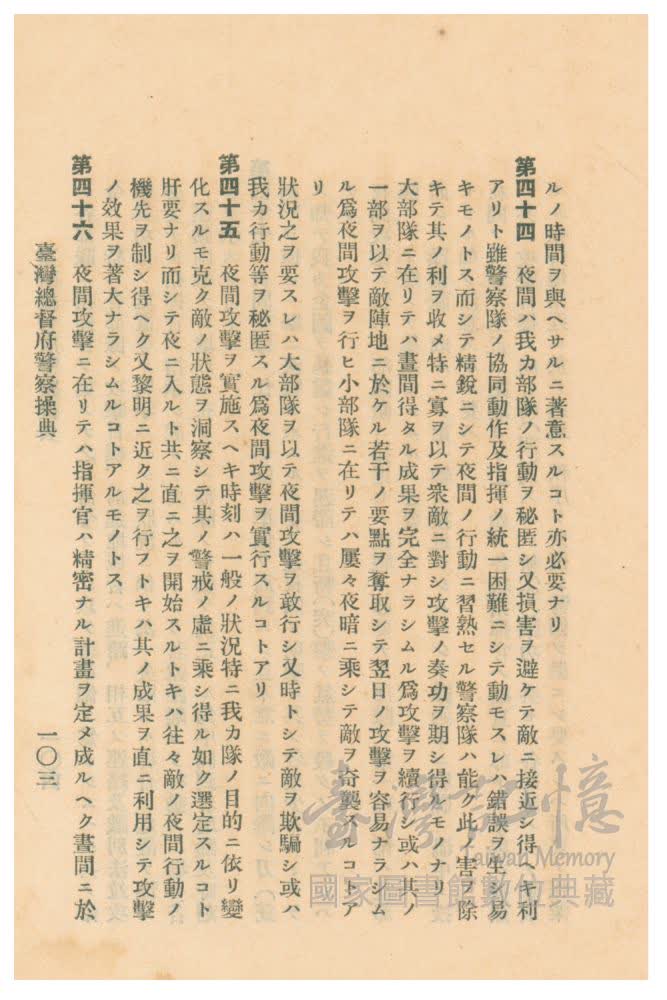 ルノ時間ヲ與ヘサルニ著意スルコト亦必要ナリ
第四十四　夜間ハ我カ部隊ノ行動ヲ秘匿シ又損害ヲ避ケテ敵ニ接近シ得ヘキ利
アリト雖警察隊ノ協同動作及指揮ノ統一困難ニシテ動モスレハ錯誤ヲ生シ易
キモノトス而シテ精銳ニシテ夜間ノ行動ニ習熟セル警察隊ハ能ク此ノ害ヲ除
キテ其ノ利ヲ收メ特ニ寡ヲ以テ衆敵ニ對シ攻擊ノ奏功ヲ期シ得ルモノナリ
大部隊ニ在リテハ晝間得タル成果ヲ完全ナラシムル爲攻擊ヲ續行シ或ハ其ノ
一部ヲ以テ敵陣地ニ於ケル若干ノ要點ヲ奪取シテ翌日ノ攻擊ヲ容易ナラシム
ル爲夜間攻擊ヲ行ヒ小部隊ニ在リテハ屢々夜暗ニ乘シテ敵ヲ奇襲スルコトア
リ
狀況之ヲ要スレハ大部隊ヲ以テ夜間攻擊ヲ敢行シ又時トシテ敵ヲ欺騙シ或ハ
我カ行動等ヲ秘匿スル爲夜間攻擊ヲ實行スルコトアリ
第四十五　夜間攻擊ヲ實施スヘキ時刻ハ一般ノ狀況特ニ我カ隊ノ目的ニ依リ變
化スルモ克ク敵ノ狀態ヲ洞察シテ其ノ警戒ノ虛ニ乘シ得ル如ク選定スルコト
肝要ナリ而シテ夜ニ入ルト共ニ直ニ之ヲ開始スルトキハ往々敵ノ夜間行動ノ
機先ヲ制シ得ヘク又黎明ニ近ク之ヲ行フトキハ其ノ成果ヲ直ニ利用シテ攻擊
ノ效果ヲ著大ナラシムルコトアルモノトス
第四十六　夜間攻擊ニ在リテハ指揮官ハ精密ナル計畫ヲ定メ成ルヘク晝間ニ於
臺灣總督府警察操典
一〇三
臺灣記憶
Taiwan Memory
國家圖書館數位典藏